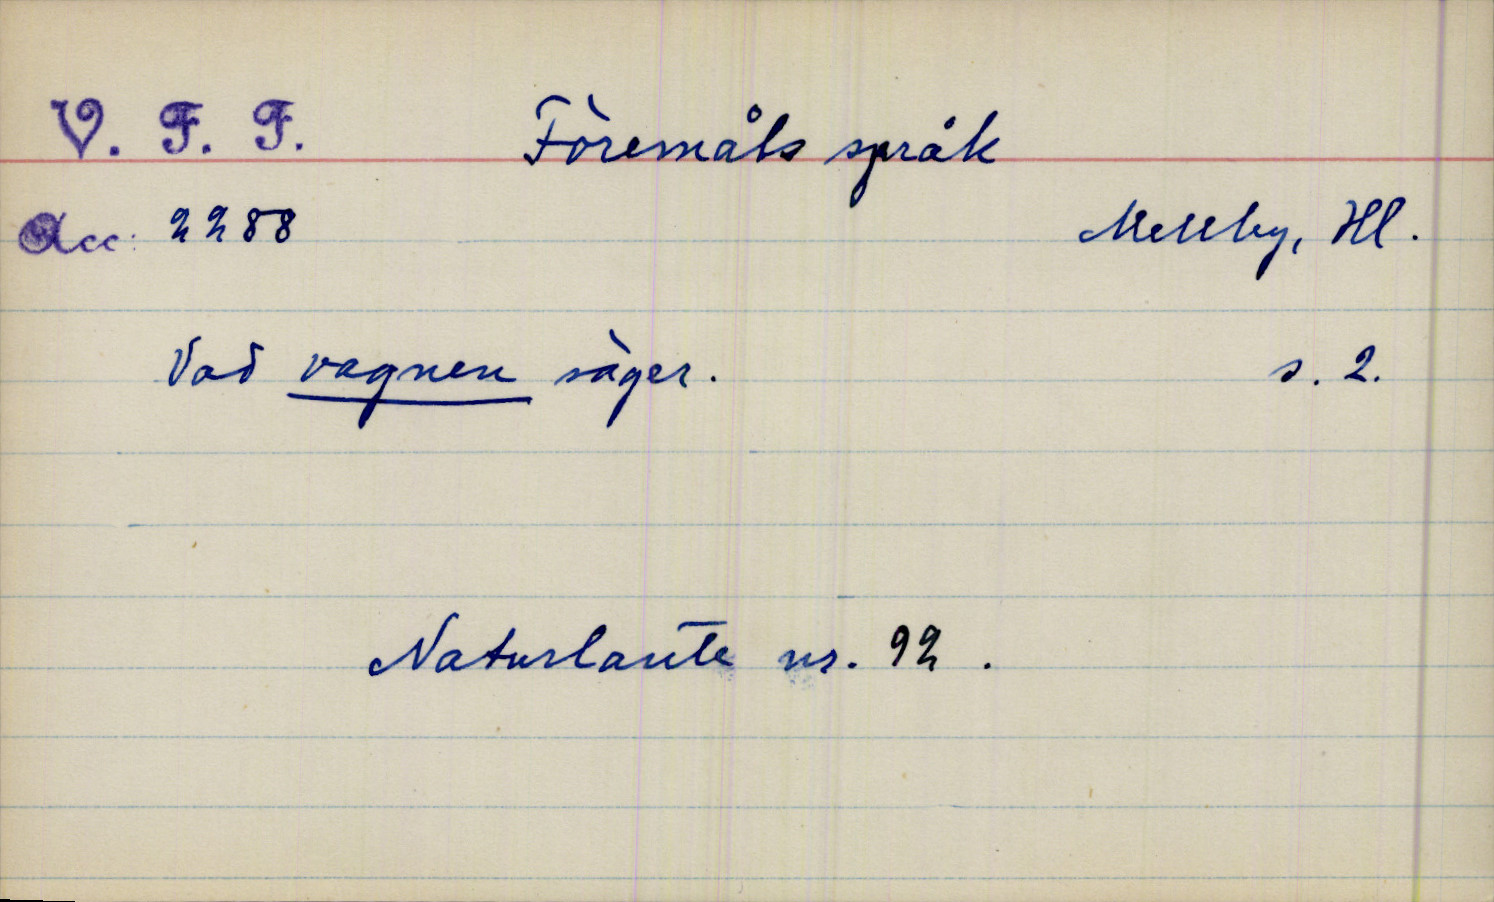 V. F. F. Föremåls språk
Acc: 2288 Mellby, Hl.
Vad vagnen säger. s. 2.
Naturlaute nr. 92.